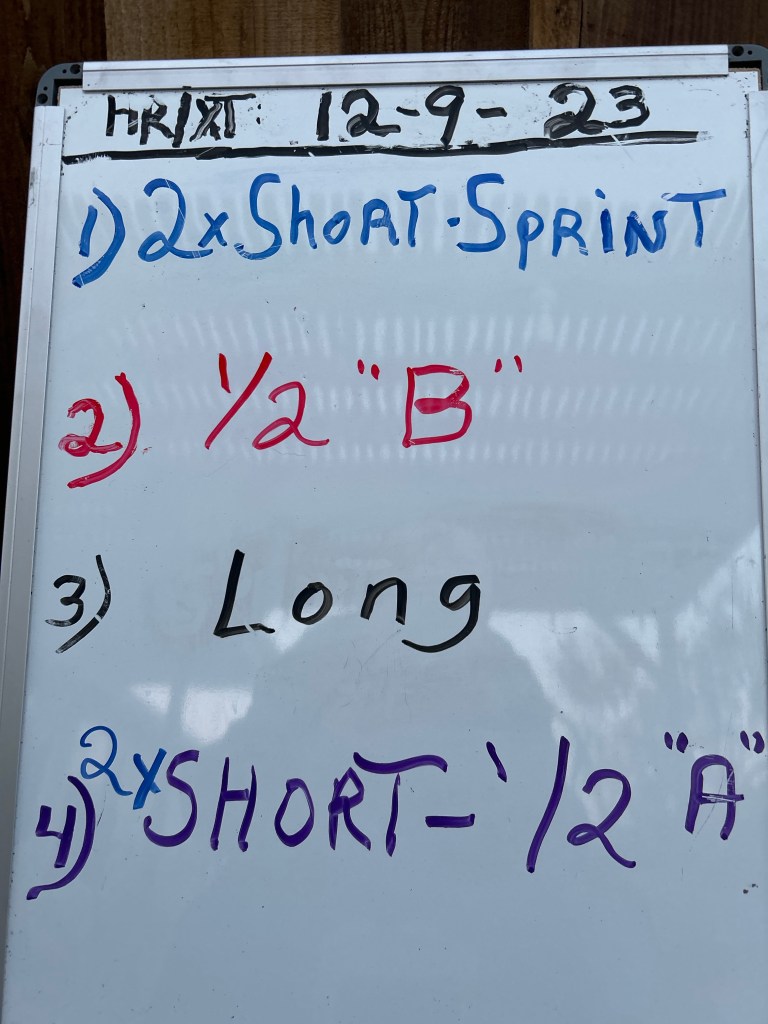 HR/XT: 12-9-23
1) 2x SHORT-SPRINT
2) 1/2 "B"
3) Long
4) 2x SHORT-1/2 "A"